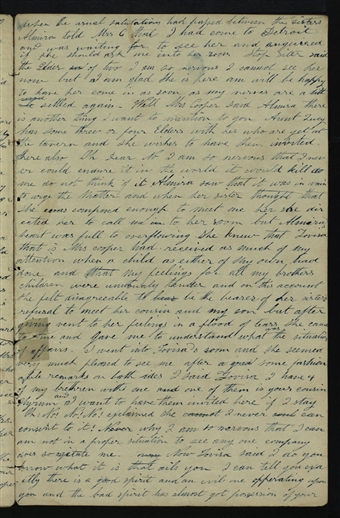 when the usual salutations had passed between the sisters
Almira told Mrs C that I had come to Detroit
and was waiting for to see her and enquired
if she should ask me into her room Stop Sister said
the Elder no I am so nervous I cannot see her
now but I am glad she is here am will be happy
to have her come in as soon as my nerves are a little
settled again. Well Mrs Cooper said Almira there
is another thing I want to mention to you Aunt Lucy
has some three or four Elders with her who are yet at
the tavern and she wishes to have them invited
here also Oh dear No I am so nervous that I nev
er could endure it in the world it would kill
me do not think of it Almira saw that it was in vain
to urge the matter and when her sister thought that
she was composed enough to meet me her
sister to call me in to her room but Almira's
heart was full to overflowing She knew that Lovisa
that is Mrs cooper had received as much of my
attention when a child as either of my own had
done and that my feelings for all my brothers
children were uniformly tender and on this account
she felt disagreeable to be the bearer of her sisters
refusal to meet her cousin and my son but after
giving vent to her feelings in a flood of tears she came
to me and gave me to understand what the situation
of affairs. I went into Lovisa's room and she seemed
very much pleased to see me after a good some
remarks on both sides I said Lovisa I have 4
of my brethren with me and one of them is your cousin
Hyrum and I want to have them invited here if I stay
Oh No! No! No! exclaimed she I never can
consent to it! Never why I am so nervous that I can
am not in a proper situation to see any one company
does so agitate me. Now Lovisa said I do you
know what it is that ails you I can tell you exa
ctly there is a good spirit and an evil one opperating upon
you and the bad spirit has almost got possession of your